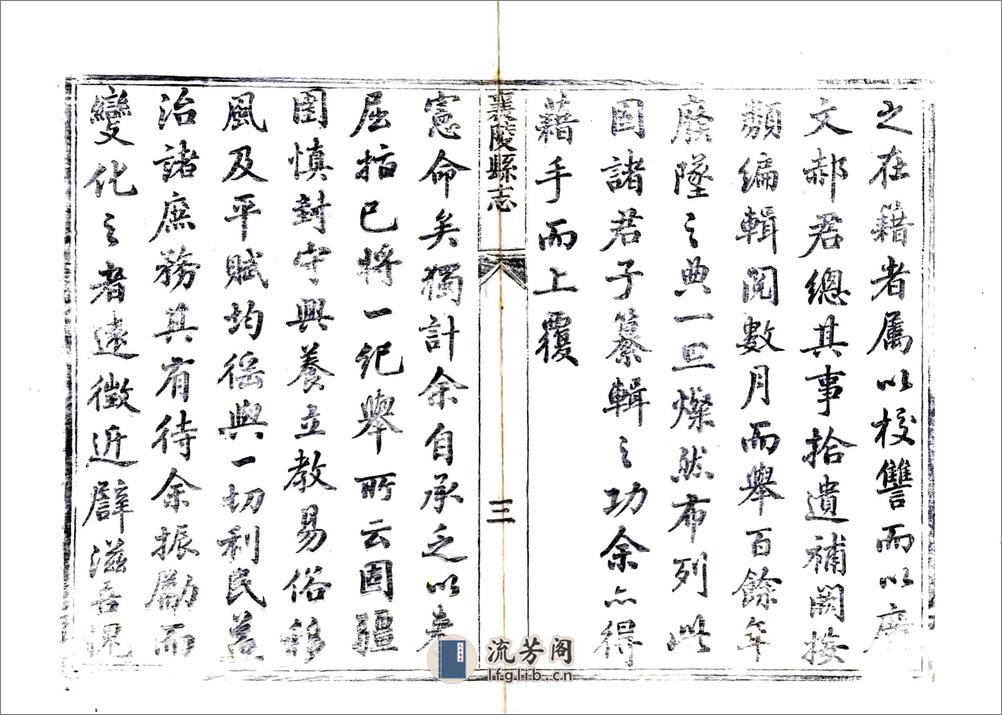 之在籍者属以校讐而以廣
文郝君總其事拾遺補闕按
類編輯閱數月而舉百餘年
廢墜之典一旦燦然布列此
固諸君子纂輯之功余亦得
藉手而上覆
襄陵縣志
三
憲命矣獨計余自承乏以來
屈指已將一紀舉所云固疆
圉慎封守興養立教易俗移
風及平賦均徭與一切利民
治諸庶務其有待余振勵而
變化之者遠徵近譬滋吾愧
流芳阁
lfglib.cn